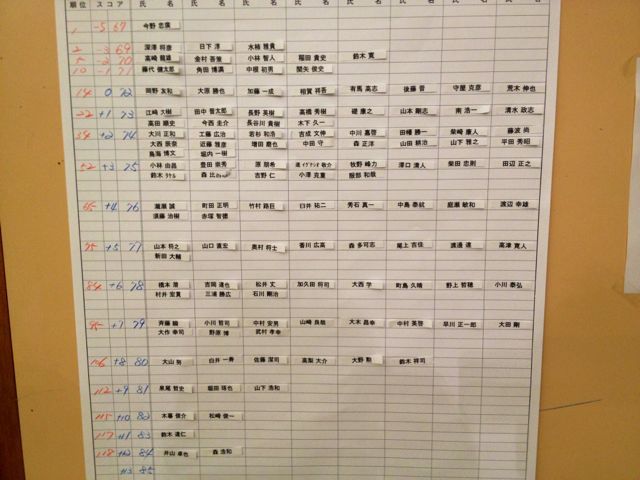 順位 スコア 氏 名 氏 名 氏 名 氏 名 氏 名 氏 名 氏 名 氏 名
1 -5 67 今野 忠廣
2 -3 69 深澤 将彦 日下 淳 水柿 雅貴
5 -2 70 高崎 龍雄 金村 吾兼 小林 智人 稲田 貴史 鈴木 寛
10 -1 71 藤代 健太郎 角田 博満 中根 初男 関矢 俊史
14 0 72 岡野 友和 大原 勝也 加藤 一成 相賀 祥吾 有馬 高志 後藤 晋 守屋 克彦 荒木 伸也
22 +1 73 江崎 大樹 田中 晋太郎 長野 英樹 高橋 秀樹 礒 康之 山本 剛志 南 浩一 清水 政志
高田 順史 今西 圭介 長谷川 貴樹 木下 久一
34 +2 74 大川 正和 工藤 広治 若杉 和浩 吉成 文伸 中川 嘉啓 田幡 勝一 柴崎 康人 藤波 尚
大西 辰奈 近藤 雅彦 増田 磨也 中田 守 森 正洋 山田 耕治 山下 雅之 平田 秀昭
鳥海 博文 堀内 一樹
52 +3 75 小林 由昌 豊田 崇秀 原 朋希 牧野 峰力 澤口 清人 柴田 忠則 田辺 正之
鈴木 吉野 仁 小澤 克重 服部 和哉
65 +4 76 瀧瀬 誠 町田 正明 竹村 路巨 臼井 祐二 秀石 真一 中島 泰紘 庭瀬 敏和 渡辺 幸雄
須藤 治樹 赤塚 智徳
75 +5 77 山本 将之 山口 直宏 奥村 将士 香川 広高 森 多可志 尾上 吉佳 渡邊 達 高津 寛人
新田 大輔
84 +6 78 橋本 潜 吉岡 達也 松井 丈 加久田 将司 大西 学 町島 久晴 野上 哲穂 小川 泰弘
村井 宏貫 三浦 勝広 石川 剛治
95 +7 79 斉藤 小川 哲司 中村 安男 山崎 良哉 大木 昌幸 中村 英啓 早川 正一郎 大田 剛
大作 幸司 野原 博 武村 孝幸
106 +8 80 大山 努 白井 一寿 佐藤 深司 高梨 大介 大野 鈴木 祥司
112 +9 81 泉尾 哲史 堀田 琢也 山下 浩和
115 +10 82 木暮 俊介 松崎 俊一
117 +11 83 鈴木 達仁
118 +12 84 井山 卓也 森 浩和
+13 85